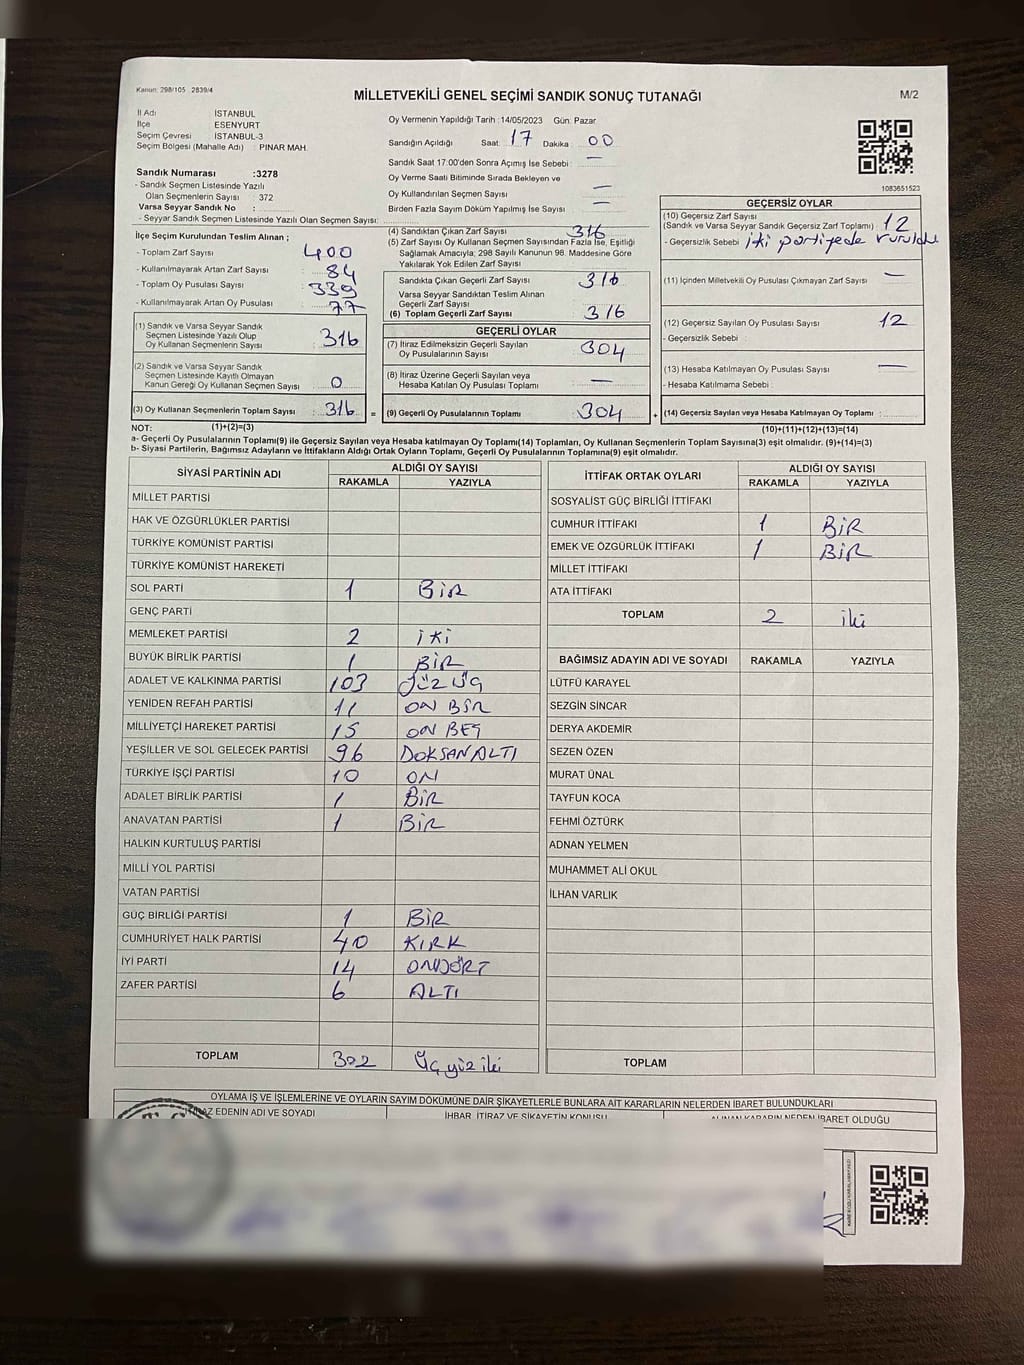 Kanun: 298/105 2839/4
MİLLETVEKİLİ GENEL SEÇİMİ SANDIK SONUÇ TUTANAĞI
M/2
İl Adı : İSTANBUL
İlçe : ESENYURT
Seçim Çevresi : İSTANBUL-3
Seçim Bölgesi (Mahalle Adı) : PINAR MAH.
Sandık Numarası :3278
- Sandık Seçmen Listesinde Yazılı
Olan Seçmenlerin Sayısı : 372
Varsa Seyyar Sandık No :
- Seyyar Sandık Seçmen Listesinde Yazılı Olan Seçmen Sayısı:
Oy Vermenin Yapıldığı Tarih :14/05/2023 Gün: Pazar
Sandığın Açıldığı Saat: 17 Dakika : 00
Sandık Saat 17:00'den Sonra Açımış İse Sebebi : —
Oy Verme Saati Bitiminde Sırada Bekleyen ve
Oy Kullandırılan Seçmen Sayısı : —
Birden Fazla Sayım Döküm Yapılmış İse Sayısı : —
1083651523
İlçe Seçim Kurulundan Teslim Alınan ;
- Toplam Zarf Sayısı : 400
- Kullanılmayarak Artan Zarf Sayısı : 84
- Toplam Oy Pusulası Sayısı : 339
- Kullanılmayarak Artan Oy Pusulası : 77
(1) Sandık ve Varsa Seyyar Sandık
Seçmen Listesinde Yazılı Olup
Oy Kullanan Seçmenlerin Sayısı : 316
(2) Sandık ve Varsa Seyyar Sandık
Seçmen Listesinde Kayıtlı Olmayan
Kanun Gereği Oy Kullanan Seçmen Sayısı : 0
(3) Oy Kullanan Seçmenlerin Toplam Sayısı : 316 =
(4) Sandıktan Çıkan Zarf Sayısı : 316
(5) Zarf Sayısı Oy Kullanan Seçmen Sayısından Fazla İse, Eşitliği
Sağlamak Amacıyla; 298 Sayılı Kanunun 98. Maddesine Göre
Yakılarak Yok Edilen Zarf Sayısı :
Sandıkta Çıkan Geçerli Zarf Sayısı : 316
Varsa Seyyar Sandıktan Teslim Alınan
Geçerli Zarf Sayısı :
(6) Toplam Geçerli Zarf Sayısı : 316
GEÇERLİ OYLAR
(7) İtiraz Edilmeksizin Geçerli Sayılan
Oy Pusulalarının Sayısı : 304
(8) İtiraz Üzerine Geçerli Sayılan veya
Hesaba Katılan Oy Pusulası Toplamı : —
(9) Geçerli Oy Pusulalarının Toplamı : 304 +
GEÇERSİZ OYLAR
(10) Geçersiz Zarf Sayısı
(Sandık ve Varsa Seyyar Sandık Geçersiz Zarf Toplamı) : 12
- Geçersizlik Sebebi : iki partiyede vuruldu
(11) İçinden Milletvekili Oy Pusulası Çıkmayan Zarf Sayısı : —
(12) Geçersiz Sayılan Oy Pusulası Sayısı : 12
- Geçersizlik Sebebi :
(13) Hesaba Katılmayan Oy Pusulası Sayısı : —
- Hesaba Katılmama Sebebi :
(14) Geçersiz Sayılan veya Hesaba Katılmayan Oy Toplamı :
NOT: (1)+(2)=(3) (10)+(11)+(12)+(13)=(14)
a- Geçerli Oy Pusulalarının Toplamı(9) ile Geçersiz Sayılan veya Hesaba katılmayan Oy Toplamı(14) Toplamları, Oy Kullanan Seçmenlerin Toplam Sayısına(3) eşit olmalıdır. (9)+(14)=(3)
b- Siyasi Partilerin, Bağımsız Adayların ve İttifakların Aldığı Ortak Oyların Toplamı, Geçerli Oy Pusulalarının Toplamına(9) eşit olmalıdır.
SİYASİ PARTİNİN ADI ALDIĞI OY SAYISI
RAKAMLA YAZIYLA
MİLLET PARTİSİ
HAK VE ÖZGÜRLÜKLER PARTİSİ
TÜRKİYE KOMÜNİST PARTİSİ
TÜRKİYE KOMÜNİST HAREKETİ
SOL PARTİ 1 BİR
GENÇ PARTİ
MEMLEKET PARTİSİ 2 iKi
BÜYÜK BİRLİK PARTİSİ 1 BİR
ADALET VE KALKINMA PARTİSİ 103 YÜZ ÜÇ
YENİDEN REFAH PARTİSİ 11 ON BİR
MİLLİYETÇİ HAREKET PARTİSİ 15 ON BEŞ
YEŞİLLER VE SOL GELECEK PARTİSİ 96 DOKSAN ALTI
TÜRKİYE İŞÇİ PARTİSİ 10 ON
ADALET BİRLİK PARTİSİ 1 BİR
ANAVATAN PARTİSİ 1 BİR
HALKIN KURTULUŞ PARTİSİ
MİLLİ YOL PARTİSİ
VATAN PARTİSİ
GÜÇ BİRLİĞİ PARTİSİ 1 BİR
CUMHURİYET HALK PARTİSİ 40 KIRK
İYİ PARTİ 14 ONDÖRT
ZAFER PARTİSİ 6 ALTI
TOPLAM 302 Üç yüz iki
İTTİFAK ORTAK OYLARI ALDIĞI OY SAYISI
RAKAMLA YAZIYLA
SOSYALİST GÜÇ BİRLİĞİ İTTİFAKI
CUMHUR İTTİFAKI 1 BİR
EMEK VE ÖZGÜRLÜK İTTİFAKI 1 BİR
MİLLET İTTİFAKI
ATA İTTİFAKI
TOPLAM 2 iki
BAĞIMSIZ ADAYIN ADI VE SOYADI RAKAMLA YAZIYLA
LÜTFÜ KARAYEL
SEZGİN SİNCAR
DERYA AKDEMİR
SEZEN ÖZEN
MURAT ÜNAL
TAYFUN KOCA
FEHMİ ÖZTÜRK
ADNAN YELMEN
MUHAMMET ALİ OKUL
İLHAN VARLIK
TOPLAM
OYLAMA İŞ VE İŞLEMLERİNE VE OYLARIN SAYIM DÖKÜMÜNE DAİR ŞİKAYETLERLE BUNLARA AİT KARARLARIN NELERDEN İBARET BULUNDUKLARI
İTİRAZ EDENİN ADI VE SOYADI İHBAR, İTİRAZ VE ŞİKAYETİN KONUSU ALINAN KARARIN NEDEN İBARET OLDUĞU
T.C.